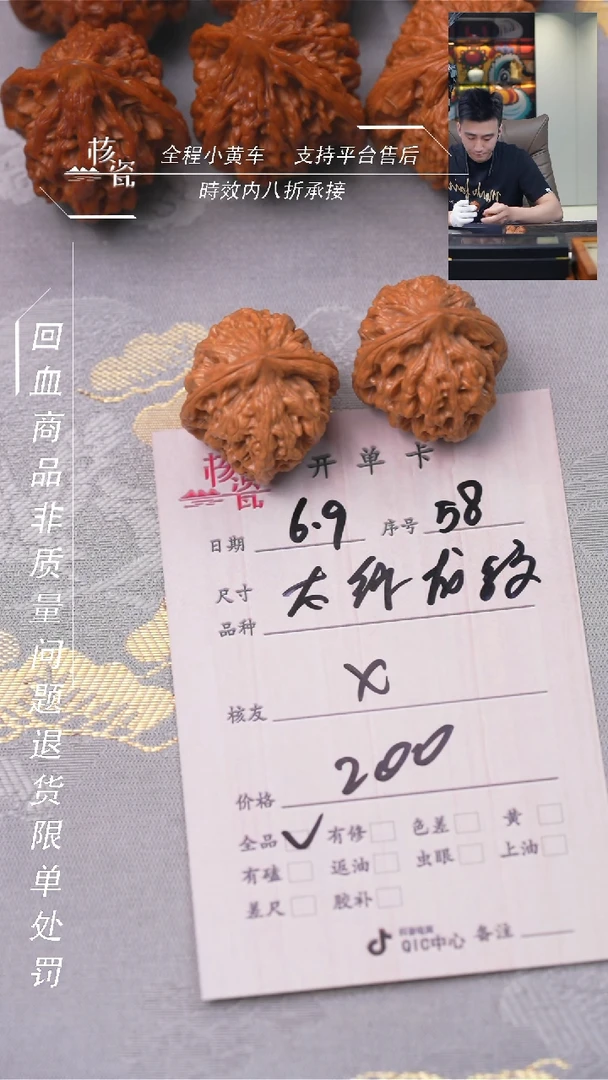 核瓷
全程小黄车 支持平台售后
時效内八折承接
回血商品非质量问题退货限单处罚
核瓷 开单卡
日期 6.9 序号 58
尺寸
品种
核友 X
价格 200
全品 ✓ 有修 色差 黄
有磕 返油 虫眼 上油
差尺 胶补
QIC中心 备注